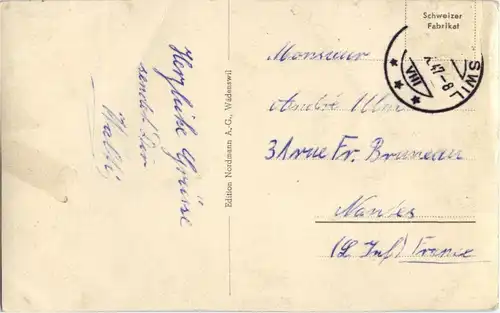 Herzliche Grüsse
sendet Dir
Walti
Edition Nordmann A.-G., Wädenswil
Schweizer
Fabrikat
SWIL
VIII
47-8
Monsieur
André
31 rue Fr. Bruneau
Nantes
(L. Inf) France